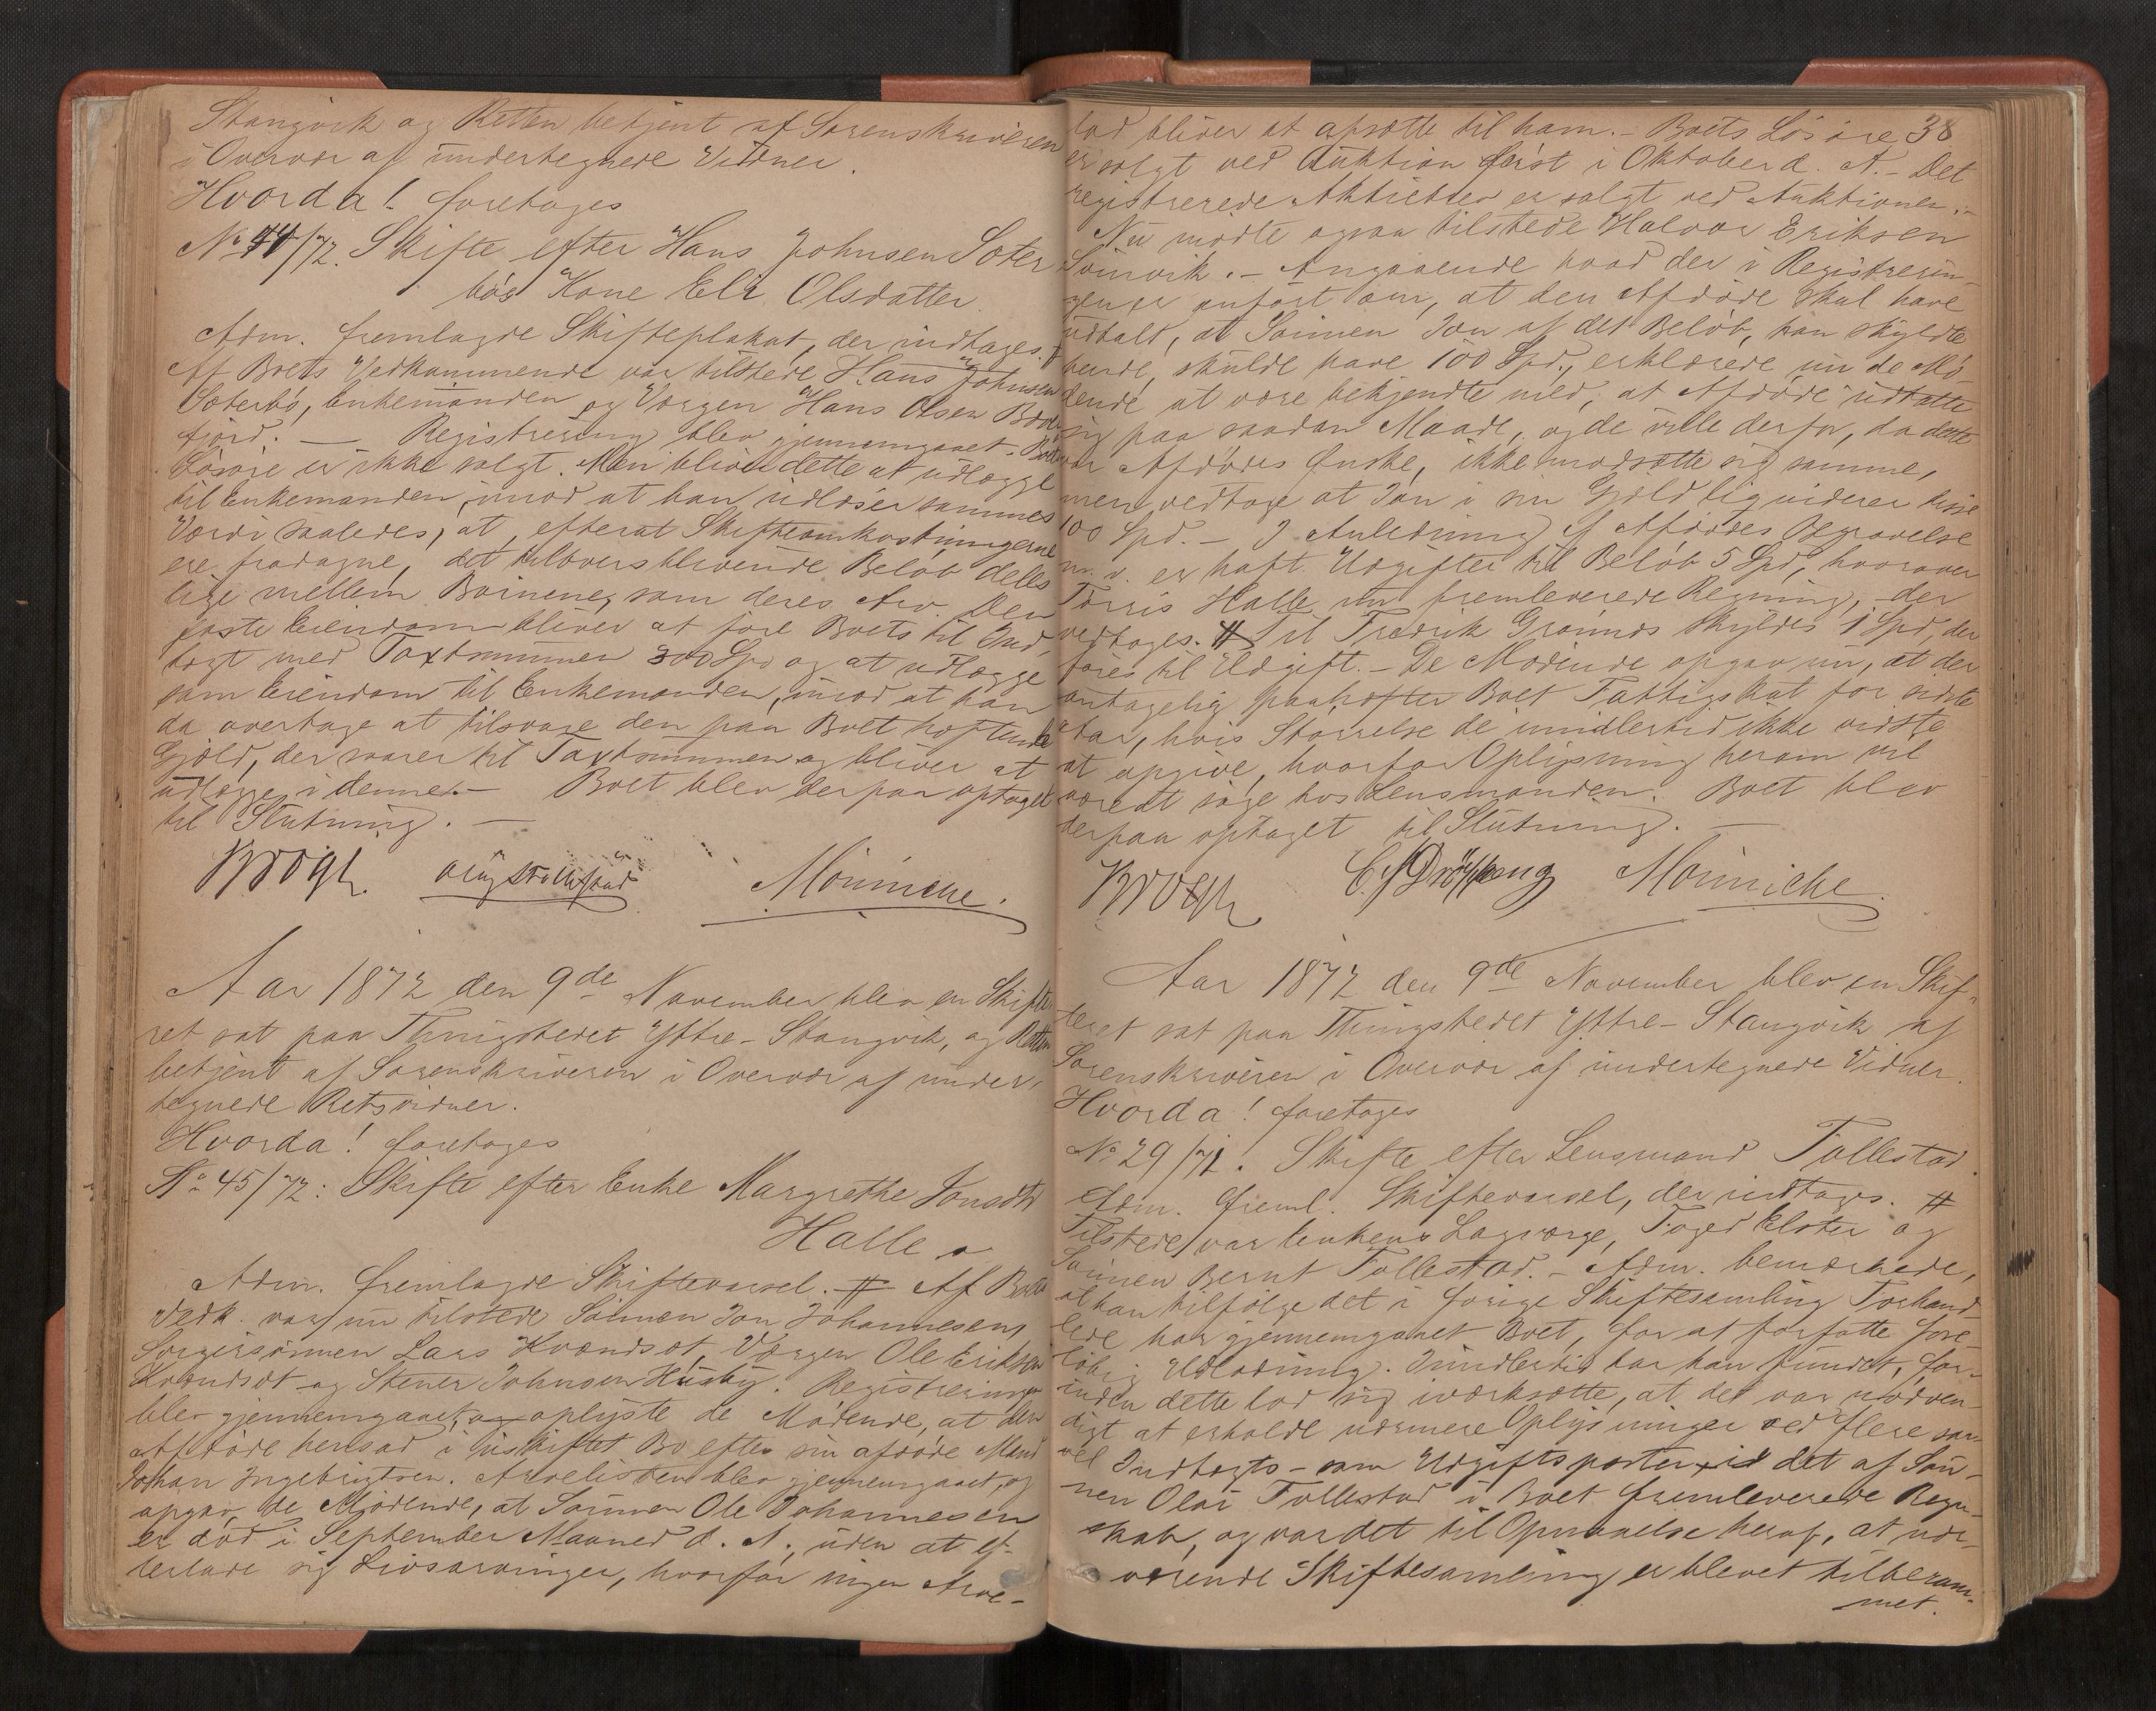 Stangvik og Retten betjent af Sorenskriveren
i Overvær af undertegnede Vidner.
Hvorda! foretages
No 44/72. Skifte efter Hans Johnsen Sæter
bös Kone Eli Olsdatter.
Adm. fremlagde Skifteplakat, der indtages. #
Af Boets Vedkommende var tilstede Hans Johnsen
Sæterbö, Enkemanden og Værgen Hans Olsen Bæver
fjord. — Registrering blev gjennemgaaet. Boets
Lösöre er ikke solgt. Men bliver dette at udlægge
til Enkemanden, imod at han udlöser sammes
Værdi saaledes, at, efterat Skifteomkostningerne
ere fradragne, det tiloversblivende Belöb deles
lige mellem Börnene, som deres Arv. Den
faste Eiendom bliver at före Boets til Ind,
tægt med Taxtsummen 300 Spd og at udlægge
som Eiendom til Enkemanden, imod at han
da overtage at tilsvare den paa Boet heftende
Gjæld, der svarer til Taxtsummen og bliver at
udlægge i denne. — Boet blev derpaa optaget
til Slutning. —
Krogh. Mönniche.
Aar 1872 den 9de November blev en Skifte
ret sat paa Thingstedet Yttre-Stangvik, og Retten
betjent af Sorenskriveren i Overvær af under,
tegnede Retsvidner.
Hvorda! foretages
No 45/72: Skifte efter Enke Margrethe Jonsdtr
Halle.
Adm. fremlagde Skiftevarsel. # Af Boets
Vedk. var nu tilstede Sönnen Jon Johannesen,
Svigersönnen Lars Kvendset, Værgen Ole Eriksen
Kvendset og Stener Johnsen Husby. Registreringen
blev gjennemgaaet, og oplyste de Mödende, at den
Afdöde hensad i uskiftet Bo efter sin afdöde Mand
Johan Ingebrigtsen. Arvelisten blev gjennemgaaet, og
opgav de Mödende, at Sönnen Ole Johannesen
er död i September Maaned d. A., uden at ef-
terlade sig Livsarvinger, hvorfor ingen Arve-
38
lod bliver at afsætte til ham. – Boets Lösöre
er solgt ved Auktion först i Oktober d. A. – Det
registrerede Aktiebrev er solgt ved Auktionen. –
Nu mödte ogsaa tilstede Halvor Eriksen
Svinvik. – Angaaende hvad der i Registrerin-
gen er anfört om, at den Afdöde skal have
udtalt, at Sönnen Jon af det Belöb, han skyldte
hende, skulde have 100 Spd., erklærede nu de Mö-
dende at være bekjendte med, at Afdöde udtalte
sig paa saadan Maade, og de ville derfor, da dette
var Afdödes Önske, ikke modsætte sig samme,
men vedtage at Jon i sin Gjæld liqviderer disse
100 Spd. – I Anledning af Afdödes Begravelse
m. v. er havt Udgifter til Belöb 5 Spd, hvorover
Torris Halle nu fremleverede Regning, der
vedtages. # Til Fredrik Grönnes skyldes 1 Spd, der
föres til Udgift. – De Mödende opgav nu, at der
antagelig paahefter Boet Fattigskat for sidste
Aar, hvis Störrelse de imidlertid ikke vidste
at opgive, hvorfor Oplysning herom vil
være at söge hos Lensmanden. Boet blev
derpaa optaget til Slutning. —
Krogh Mönniche
Aar 1872 den 9de November blev en Skif-
teret sat paa Thingstedet Yttre-Stangvik af
Sorenskriveren i Overvær af undertegnede Vidner.
Hvorda! foretages
No 29/71. Skifte efter Lensmand Tollestad.
Adm. freml. Skiftevarsel, der indtages. #
Tilstede var Enkens Lagværge, Foged Elster og
Sönnen Bernt Tollestad. – Adm. bemærkede,
at han tilfölge det i forrige Skiftesamling Forhand-
lede har gjennemgaaet Boet, for at forfatte fore-
löbig Udlodning. Imidlertid har han fundet, for-
inden dette lod sig iværksætte, at det var nödven-
digt at erholde nærmere Oplysninger ved flere saa-
vel Indtægts- som Udgiftsposter i det af Sön-
nen Olai Tollestad i Boet fremleverede Regn-
skab, og var det til Opnaaelse heraf, at nær-
værende Skiftesamling er blevet tilberam-
met.